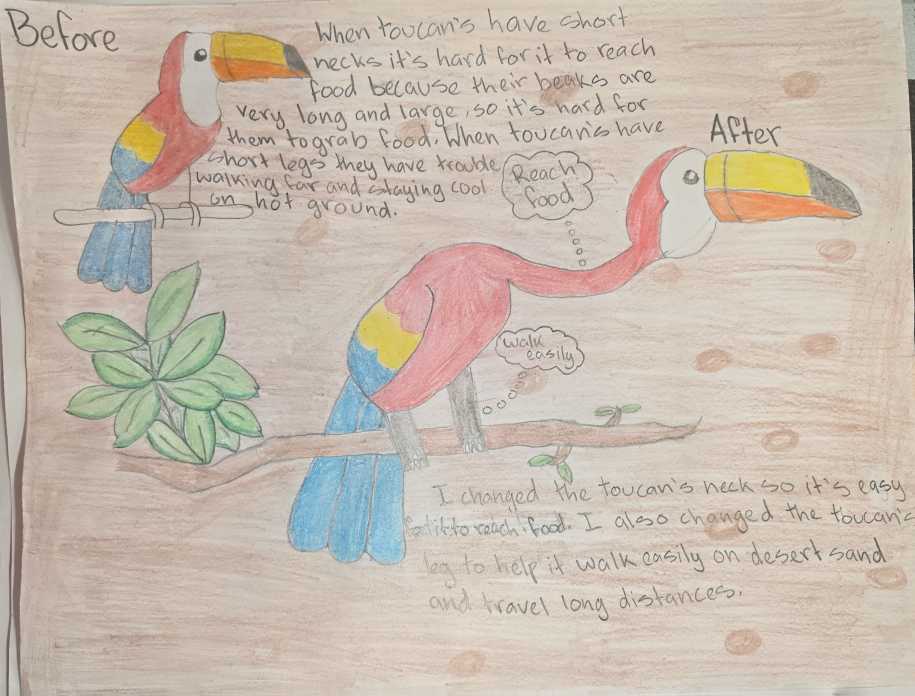 Before
When toucan's have short
necks it's hard for it to reach
food because their beaks are
very long and large, so it's hard for
them to grab food. When toucan's have
short legs they have trouble
walking far and staying cool
on hot ground.
After
Reach
food
walk
easily
I changed the toucan's neck so it's easy
for it to reach food. I also changed the toucan's
leg to help it walk easily on desert sand
and travel long distances.